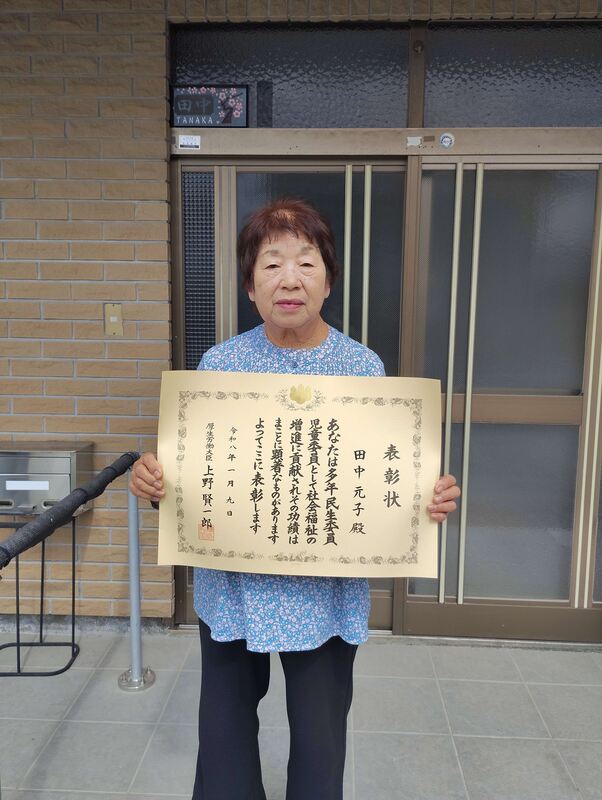 田中
TANAKA
表彰状
田中元子殿
あなたは多年民生委員
児童委員として社会福祉の
増進に貢献されその功績は
まことに顕著なものがあります
よってここに表彰します
令和八年一月九日
厚生労働大臣 上野賢一郎